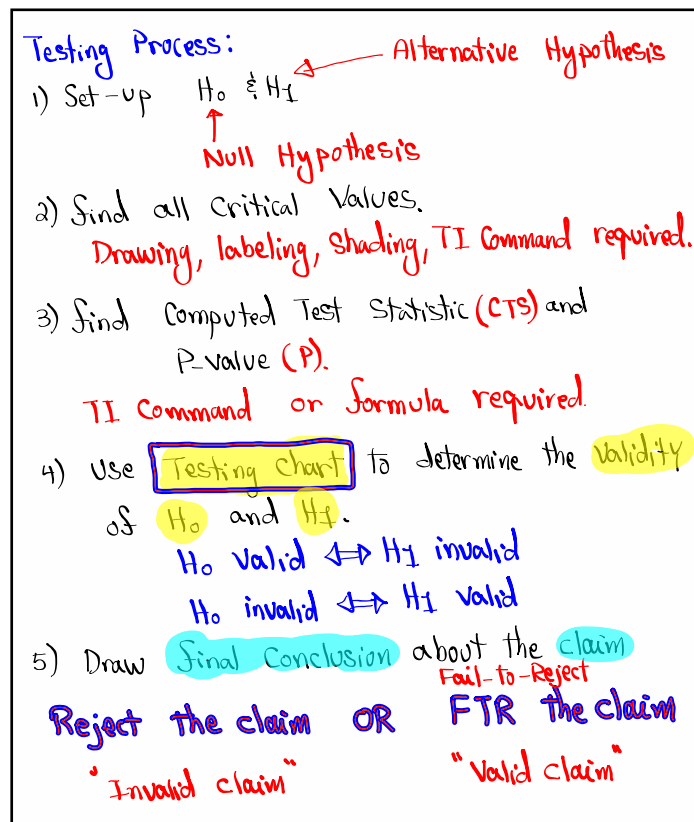 Testing Process:
Alternative Hypothesis
1) Set-up H₀ & H1
Null Hypothesis
2) find all Critical Values.
Drawing, labeling, Shading, TI Command required.
3) find Computed Test Statistic (CTS) and
P-value (P).
TI Command or formula required.
4) Use Testing Chart to determine the validity
of H₀ and H1.
H₀ Valid ⇔ H1 invalid
H₀ invalid ⇔ H1 valid
5) Draw final Conclusion about the claim
Fail-to-Reject
Reject the claim OR FTR the claim
"Invalid claim" "Valid claim"